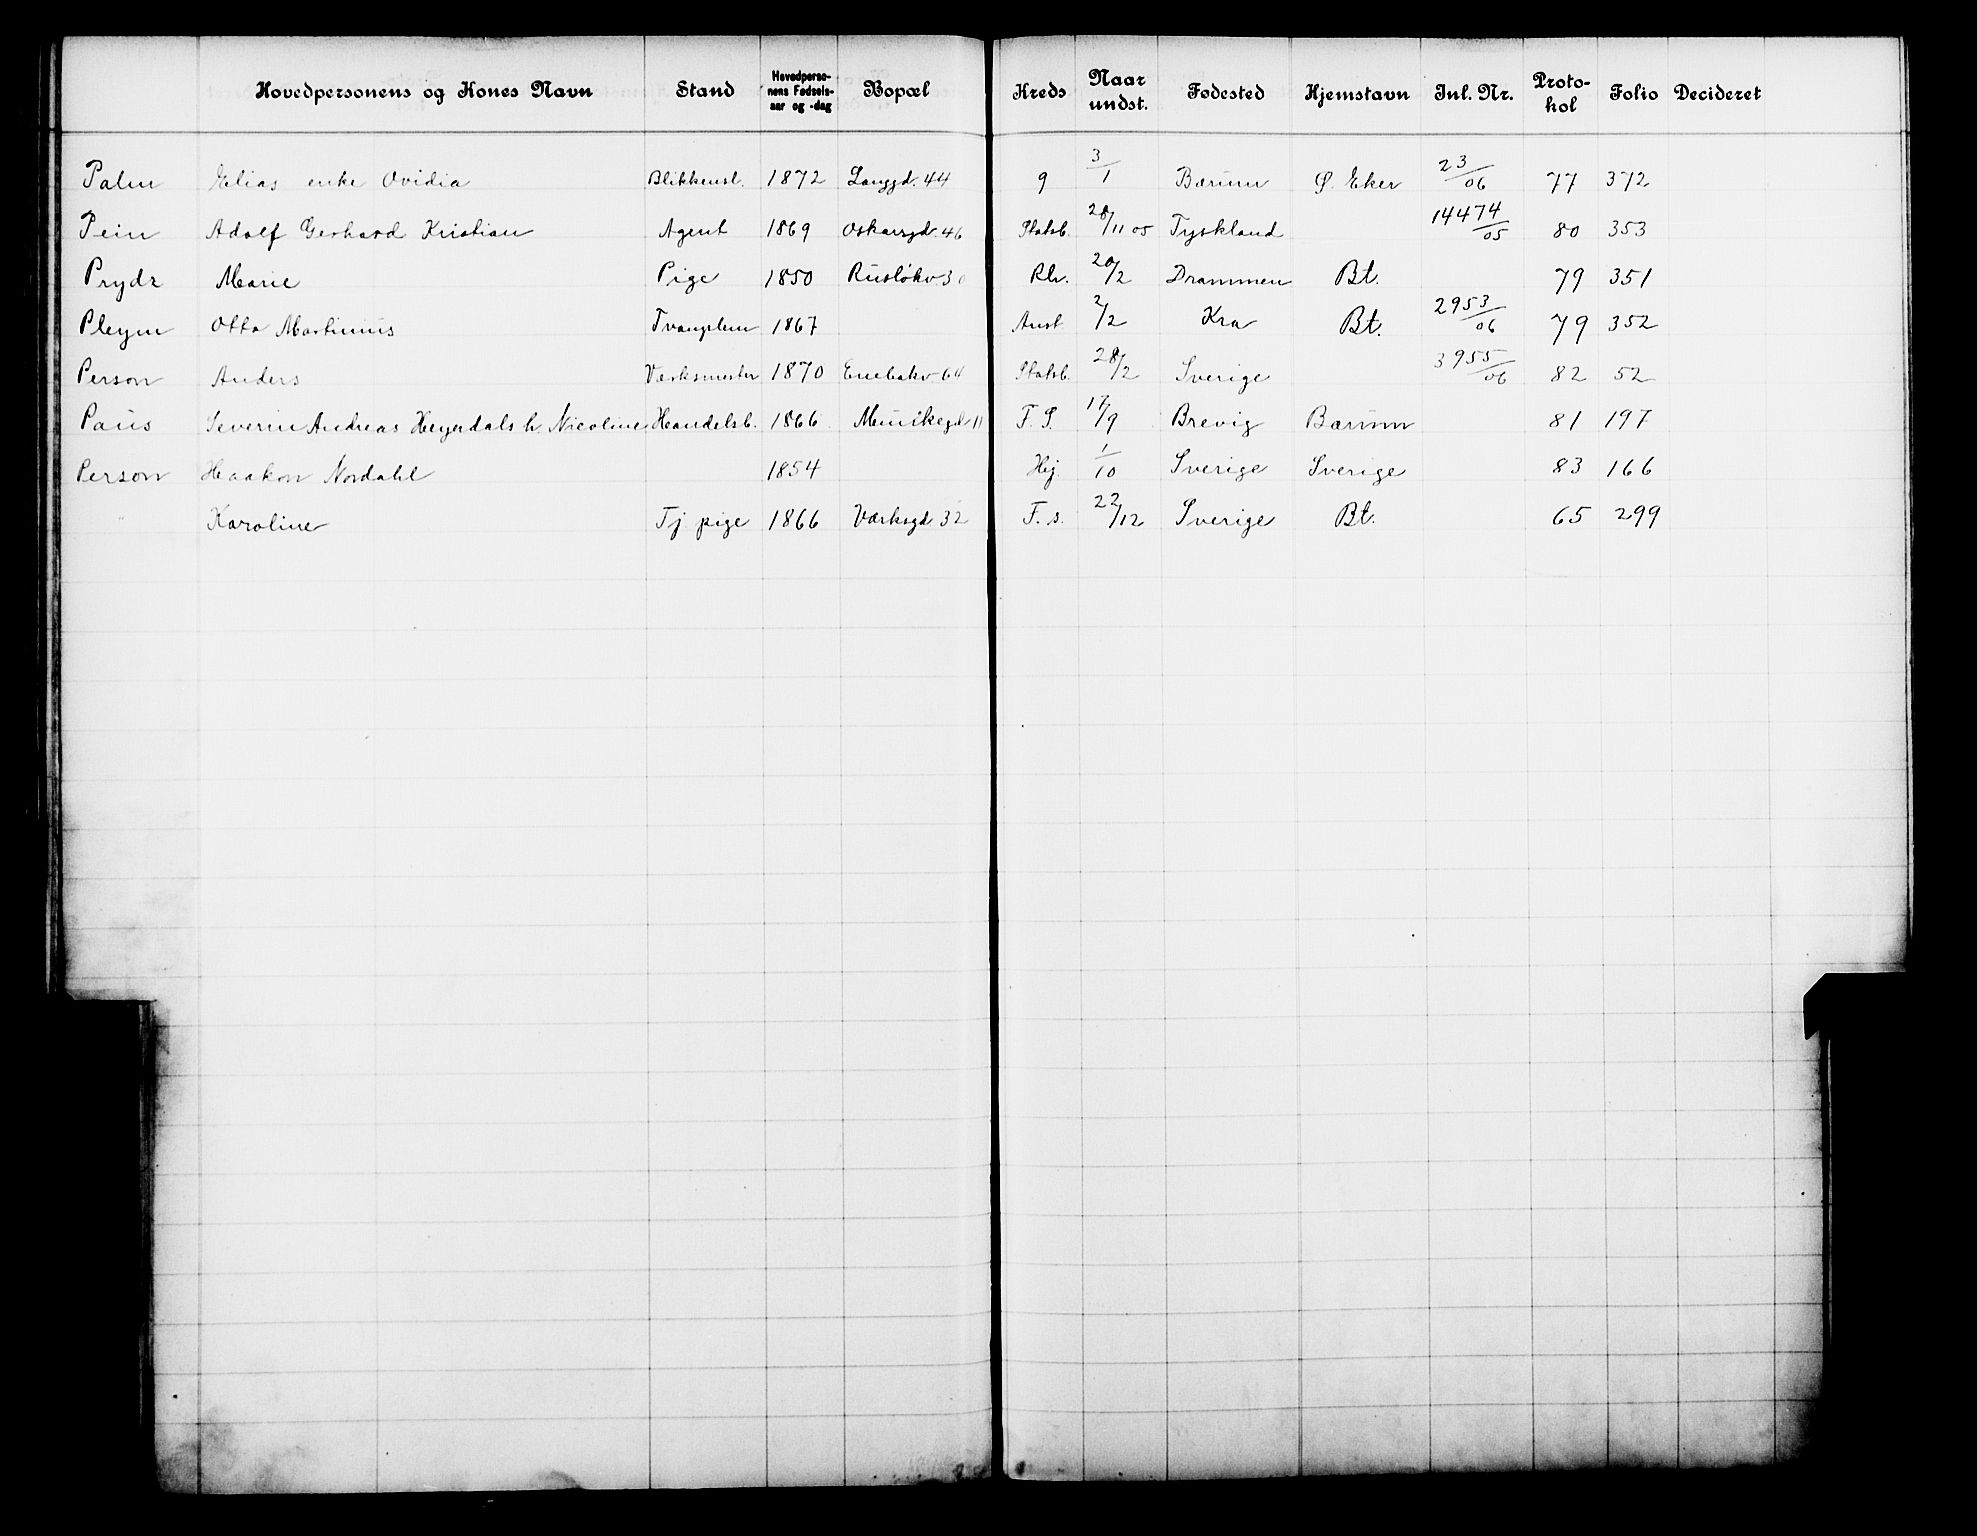 Hovedpersonens og Kones Navn Stand Hovedperso-nens Fødsels-aar og -dag Bopæl Kreds Naar undst. Fødested Hjemstavn Inl. Nr. Proto-kol Folio Decideret
Palm Elias enke Ovidia Blikkensl. 1872 Langgd. 44 9 3/1 Bærum Ø. Eker 23/06 77 372
Pein Adolf Gerhard Kristian Agent 1869 Oskarsgd. 46 Statsb. 28/11 05 Tyskland 14474/05 80 353
Prydz Marie Pige 1850 Rusløkv 30 Rh. 20/2 Drammen Bt. 79 351
Pleym Otto Martinius Tvangslem 1867 Anst 2/2 Kra Bt. 2953/06 79 352
Person Anders Værksmester 1870 Enebakv 64 Statsb. 28/2 Sverige 3955/06 82 52
Paus Severin Andreas Heyerdals h. Nicoline Handelsb. 1866 Munkegd 11 F. S. 17/9 Brevig Bærum 81 197
Person Haakon Nordahl 1854 Hej. 1/10 Sverige Sverige 83 166
" Karoline Tj pige 1866 Værksgd 32 F. s. 22/12 Sverige Bt. 65 299